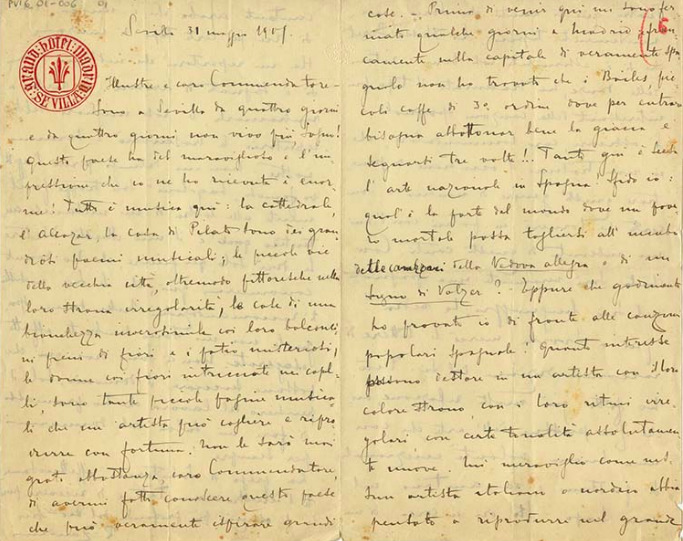 PV16, 01-006 01
GRAND HOTEL MADRID
SEVILLA
Sevilla 31 maggio 1909.
Illustre e caro Commendatore -
Sono a Sevilla da quattro giorni
e da quattro giorni non vivo più, sogno!
Questo paese ha del meraviglioso e l'im
pressione che io ne ho ricevuta è enor
me! Tutto è musica qui: la cattedrale,
l'Alcazar, la Casa di Pilato sono dei gran
diosi poemi musicali; le piccole vie
della vecchia città, oltremodo pittoresche nella
loro strana irregolarità, le case di una
bianchezza inverosimile coi loro balconci
ni pieni di fiori e i patio misteriosi,
le donne coi fiori intrecciati ai capel-
li, sono tante piccole pagine musica
li che un artista può cogliere e ripro
durre con fortuna. Non le sarò mai
grato abbastanza, caro Commendatore,
di avermi fatto conoscere questo paese
che può veramente ispirare grandi
cose. - Prima di venir qui mi sono fer
mato qualche giorni a Madrid e fran
camente nella capitale di veramente spa
gnolo non ho trovato che i Bailes, pic
coli caffè di 3º ordine dove per entrare
bisogna abbottonar bene la giacca e
segnarsi tre volte!.. Tanto giù è scesa
l'arte nazionale in Spagna. Sfido io:
qual'è la parte del mondo dove un pove
ro mortale possa togliersi all'incubo
della Vedova allegra o di un
Sogno di Valzer? - Eppure che godimento
ho provato io di fronte alle canzoni
popolari spagnole! Quanto interesse
possono destare in un artista con il loro
colore strano, con i loro ritmi irre
golari, con certe tonalità assolutamen
te nuove. Mi meraviglio come nes
sun artista italiano o nordico abbia
pensato a riprodurre nel grande